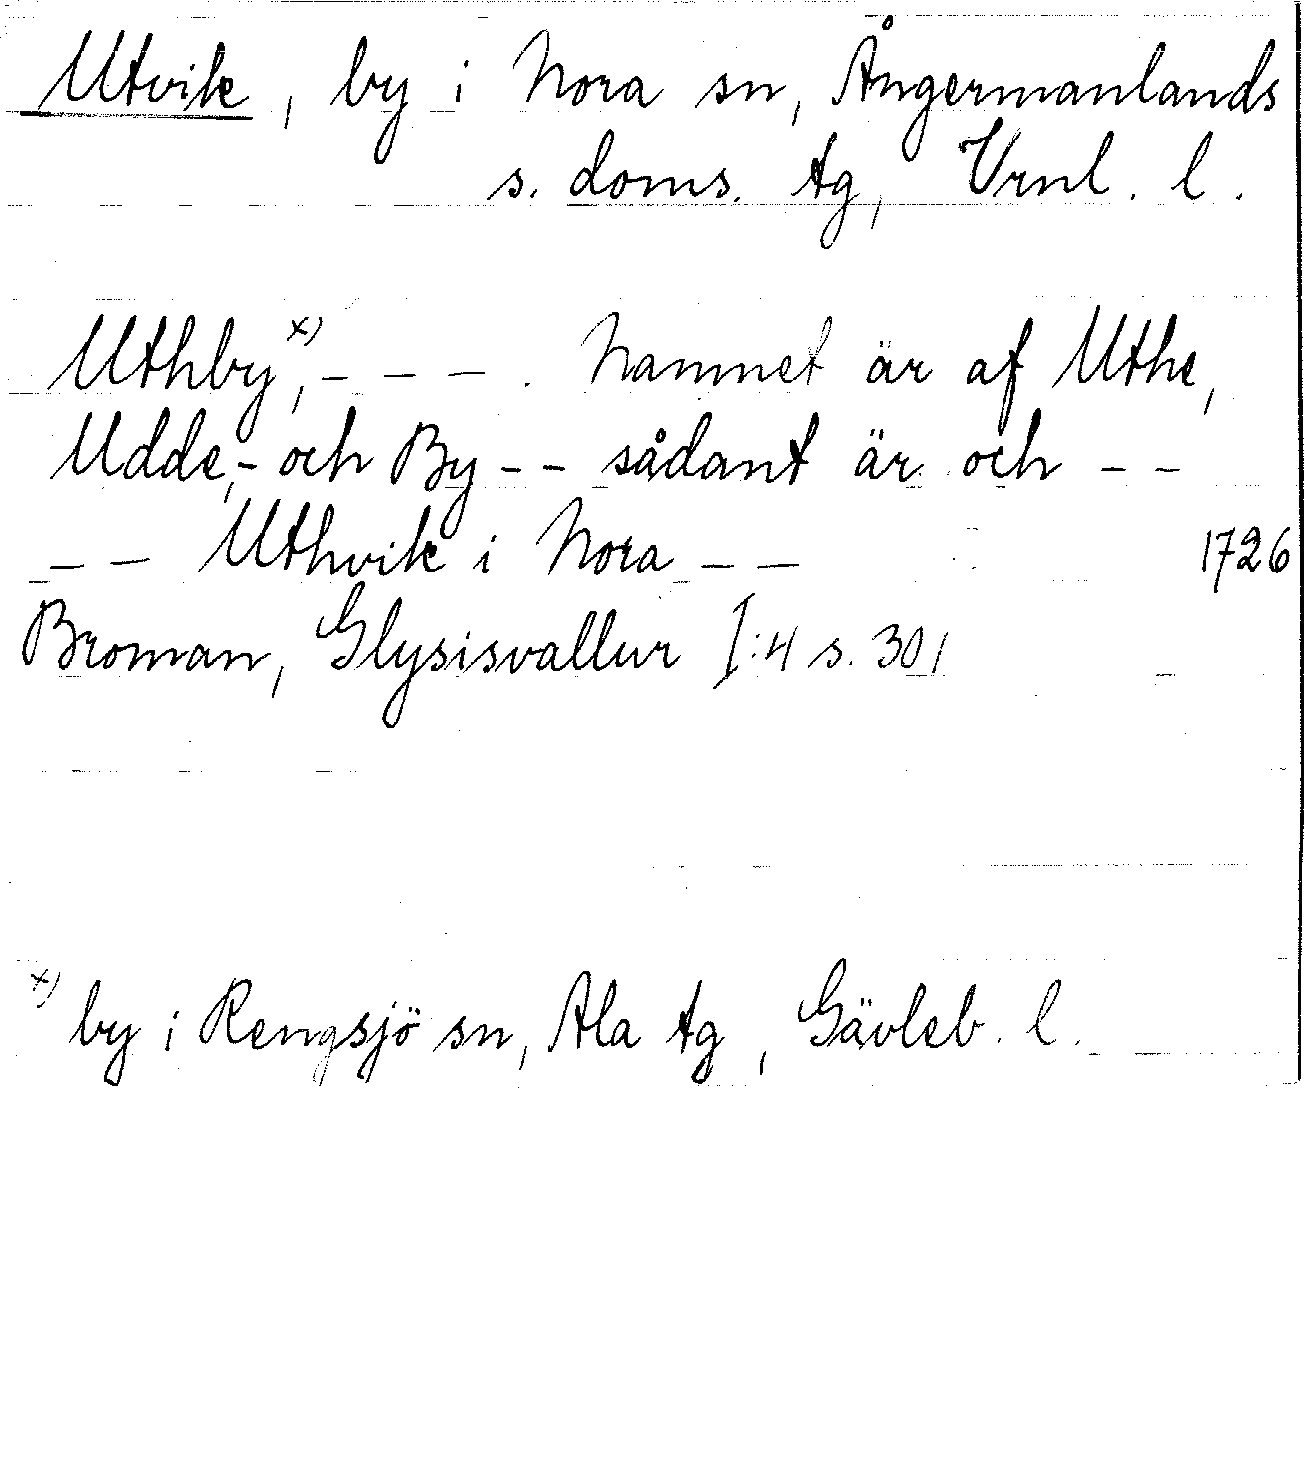 Utvik, by i Nora sn, Ångermanlands
s. doms. tg, Vrnl. l.
Uthby x), – – – . Namnet är af Uthe,
Udde, – och By – – sådant är och – –
– – Uthvik i Nora – – 1726
Broman, Glysisvallur I:4 s. 301
x) by i Rengsjö sn, Ala tg, Gävleb. l.